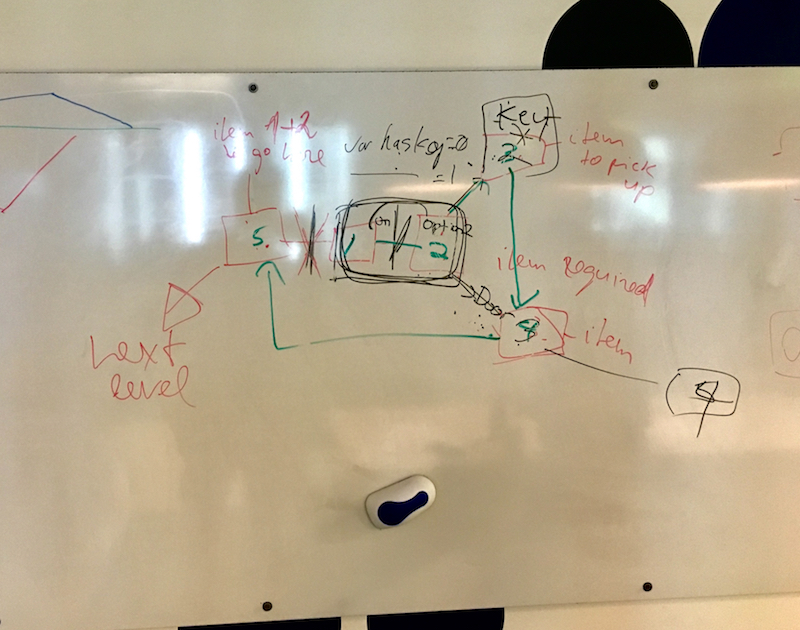 Key
item 1+2
go here
var haskey=0
=1
item
to pick
up
S.
Option2
2
item required
Door
item
next
level